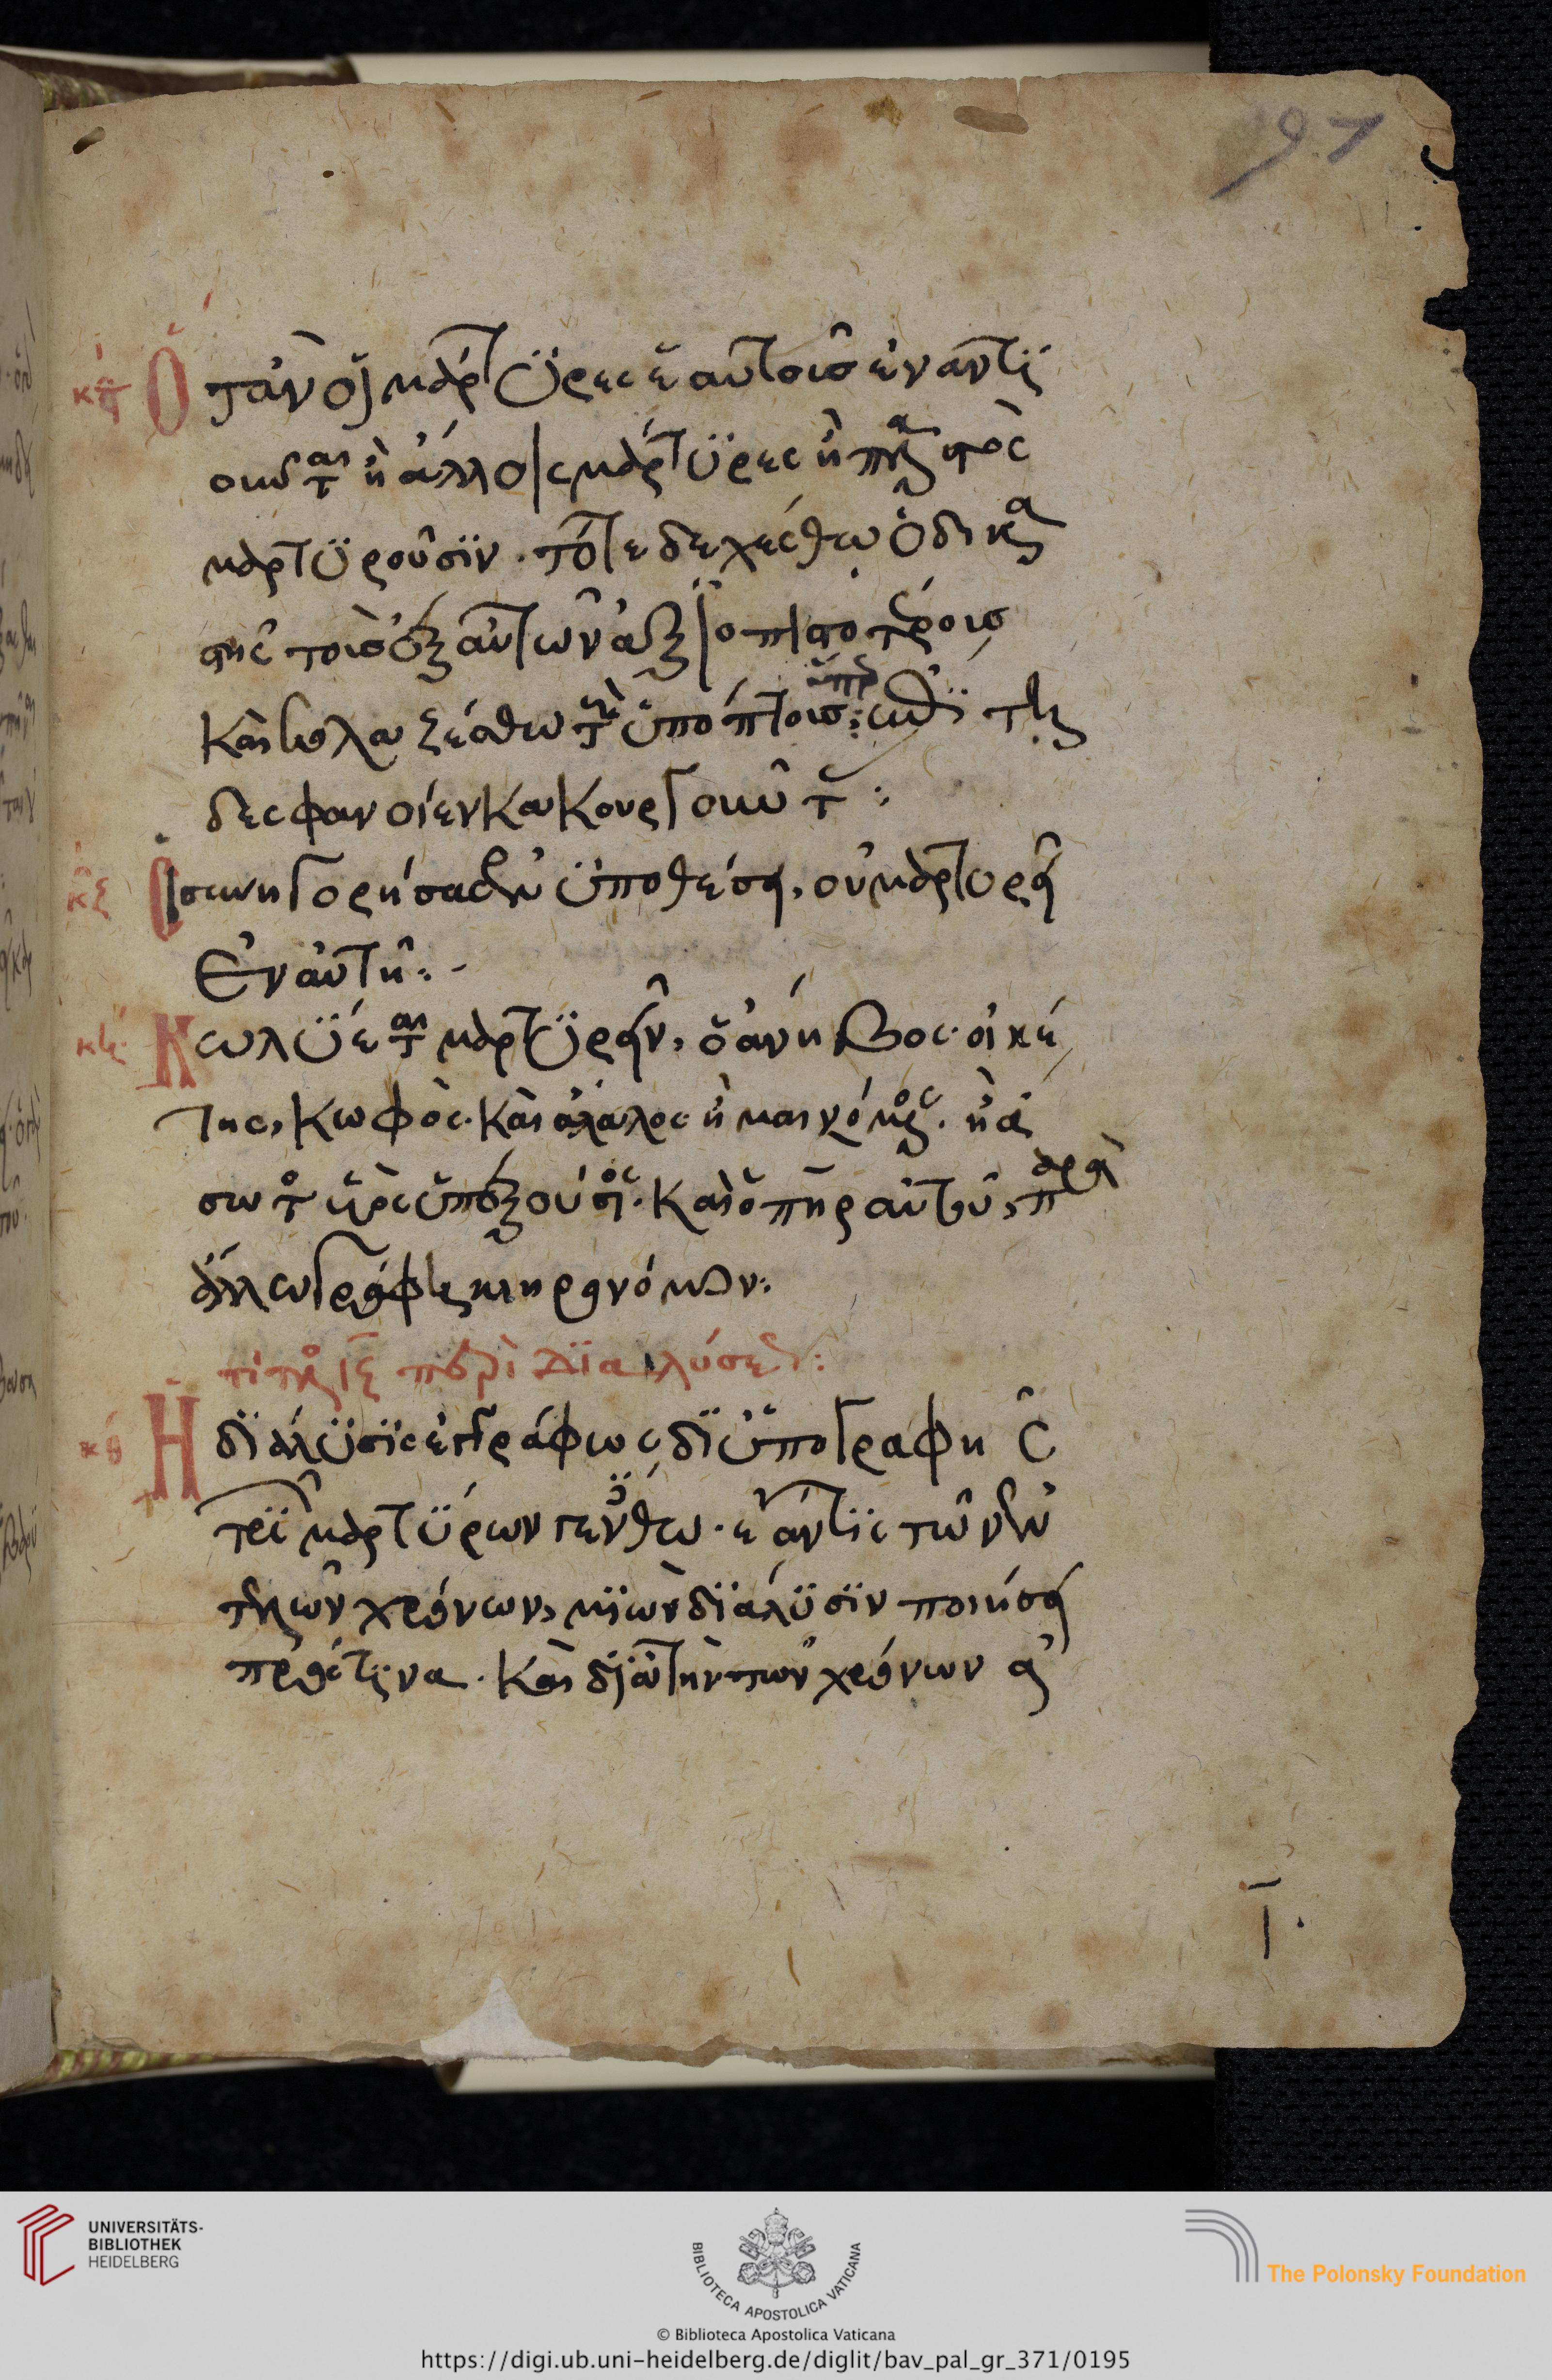 97
κϛ Ὅταν οἱ μάρτυρες ἑαυτοῖς ἐναντι
οῦνται ἢ ἄλλος μάρτυρες ἢ παρὰ
μαρτυροῦσιν. τότε δεχέσθω ὁ δικα
στὴς τοῖς ἐξ αὐτῶν ἀξιοπιστοτέροις
καὶ κολαζέσθω τοὺς ὑπόπτοις
δες φανοῖεν κακουργοῦντες:
κζ Ὁ συνηγορήσας ἐν ὑποθέσει, οὐ μαρτυρεῖ
ἐν αὐτῇ:
κη Κωλύεται μαρτυρεῖν, ὁ ἄνηβος. οἰκέ
της, κωφὸς. καὶ ἄλαλος ἢ μαινόμενος. ἢ ἄ
σωτος ὑπεξούσιος. καὶ ὁ πατὴρ αὐτοῦ, παρὰ
ἄλλω γράφεις κληρονόμων:
τίτλος ιε περὶ διαλύσεων:
κθ Ἡ διάλυσις ἐγγράφως δι ὑπογραφῆς
τριῶν μαρτύρων γενέσθω. ἐναντίς τῶν
χρόνων, διάλυσιν ποιήσει
πρός τινα. καὶ διὰ τὴν τῶν χρόνων
Γ.
UNIVERSITÄTS-
BIBLIOTHEK
HEIDELBERG
BIBLIOTECA APOSTOLICA VATICANA
The Polonsky Foundation
© Biblioteca Apostolica Vaticana
https://digi.ub.uni-heidelberg.de/diglit/bav_pal_gr_371/0195